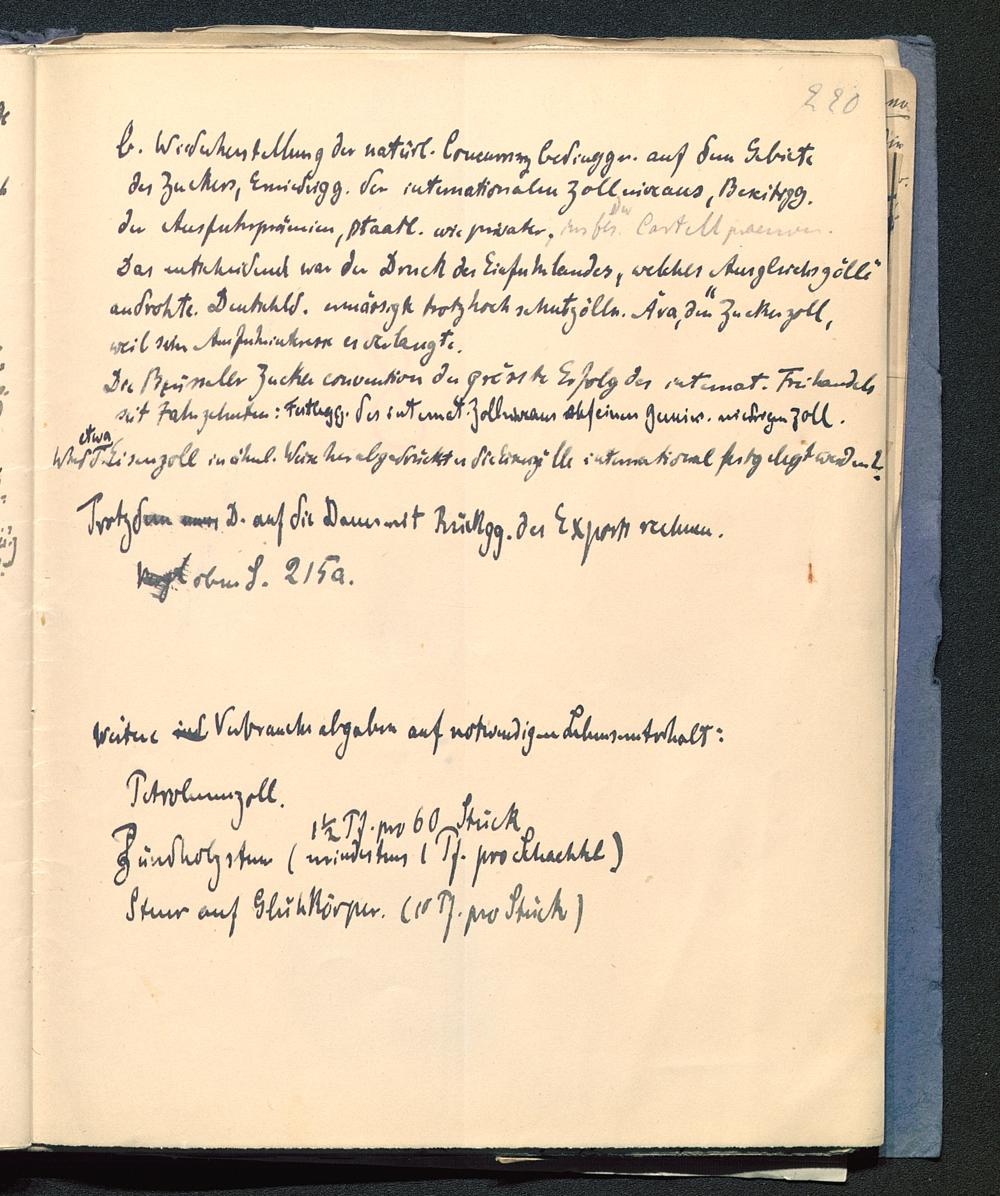 220
b. Wiederherstellung der natürl. Concurrenzbedinggen. auf dem Gebiete
des Zuckers, Erniedrigg. des internationalen Zollniveaus, Beseitigg.
der Ausfuhrprämien, staatl. wie privater, insbes. der Cartellpraemien.
Das entscheidend war der Druck des Einfuhrlandes, welches Ausgleichszölle
androhte. Deutschld. ermässigte trotz hochschutzölln. Ära, den Zuckerzoll,
weil sein Ausfuhrinteresse es verlangte.
Die Brüsseler Zuckerconvention der grösste Erfolg des internat. Freihandels
seit Jahrzehnten: Festlegg. des internat. Zollniveaus auf einen niedrigen Zoll.
etwa
Wird d. Eisenzoll in ähnl. Weise herabgedrückt u die Eisenzölle international festgelegt werden?
Trotzdem D. auf die Dauer mit Rückgg. des Exports rechnen.
oben S. 215a.
Weitere ind Verbrauchsabgaben auf notwendigen Lebensunterhalt:
Petroleumzoll.
1½ Pf. pro 60 Stück
Zündholzsteuer (mindestens 1 Pf. pro Schachtel)
Steuer auf Glühkörper. (10 Pf. pro Stück)